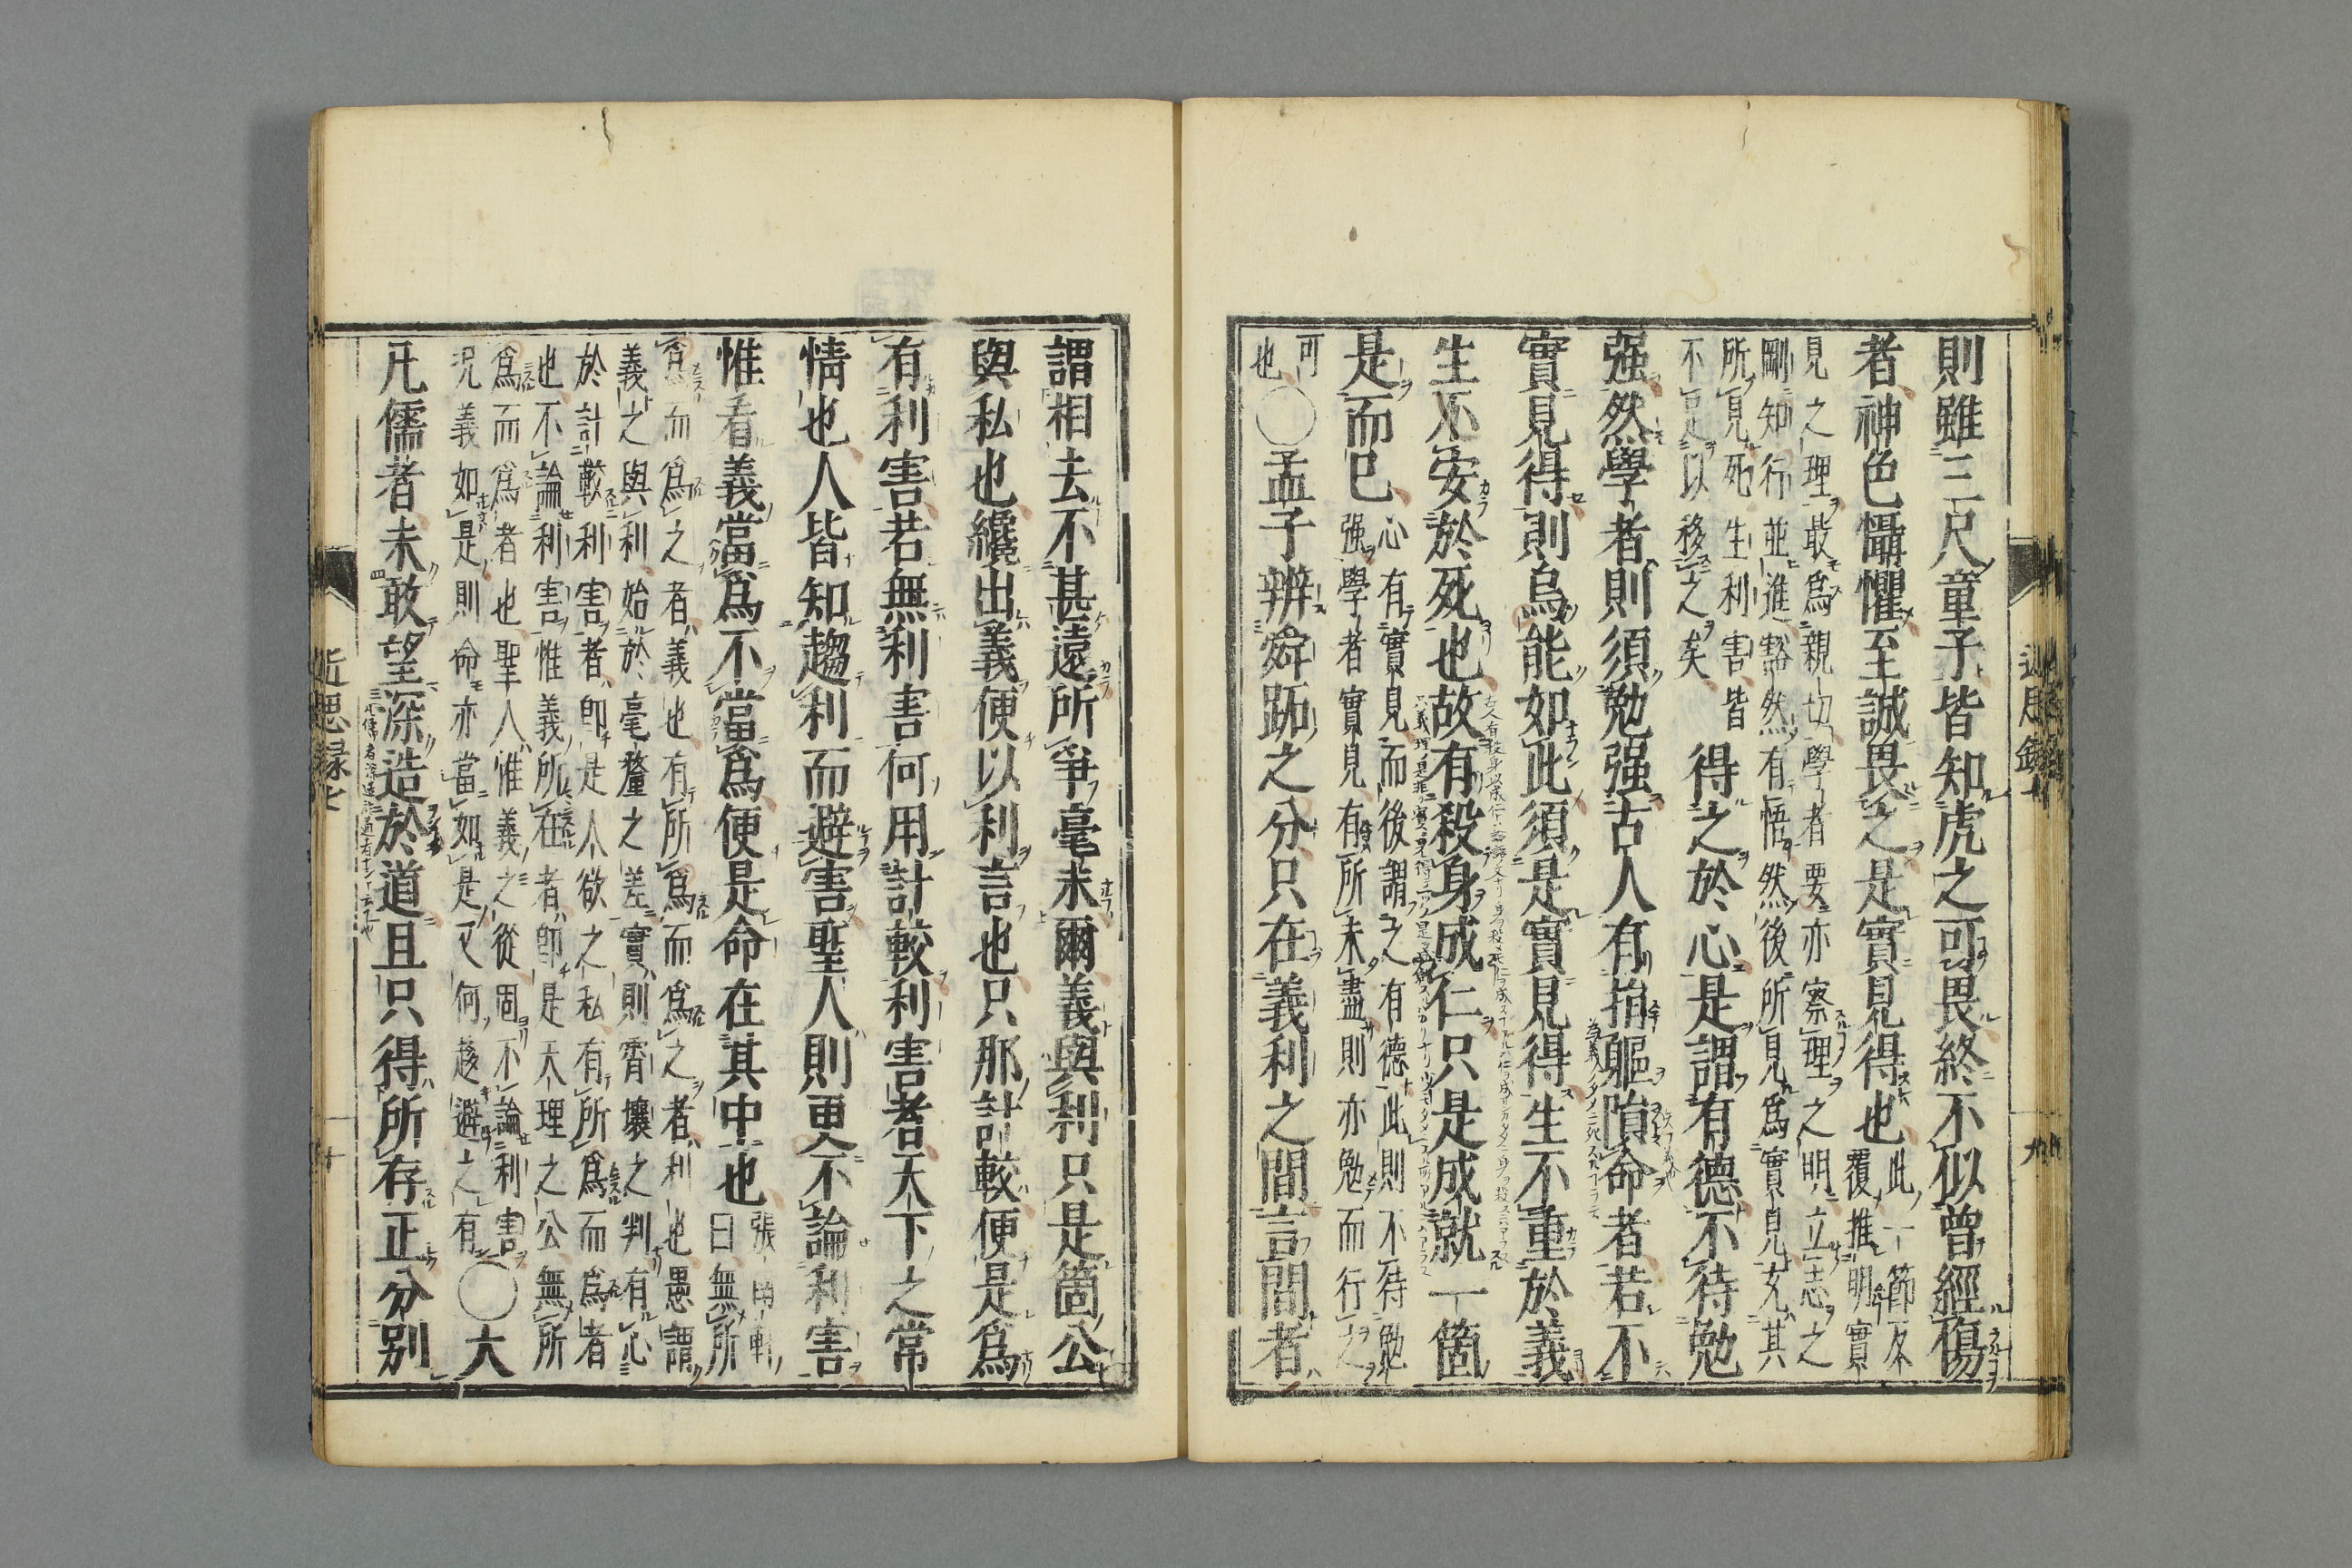 則雖三尺童子皆知虎之可畏終不似曾經傷
者神色懾懼至誠畏之是實見得也
此一節反
覆推明實
見之理最爲親切學者要亦察理之明立志之
剛知行並進豁然有悟然後所見爲實見充其
所見死生利害皆
不足以移之矣
得之於心是謂有德不待勉
强然學者則須勉强古人有捐軀隕命者若不
實見得則烏能如此須是實見得生不重於義
生不安於死也故有殺身成仁只是成就一箇
是而已
心有實見而後謂之有德此則不待勉
强學者實見有所未盡則亦勉而行之
可
也
○孟子辨舜跖之分只在義利之間言間者
近思録
九
謂相去不甚遠所爭毫末爾義與利只是箇公
與私也纔出義便以利言也只那計較便是爲
有利害若無利害何用計較利害者天下之常
情也人皆知趨利而避害聖人則更不論利害
惟看義當爲不當爲便是命在其中也
張南軒
曰無所
爲而爲之者義也有所爲而爲之者利也愚謂
義之與利始於毫釐之差實則霄壤之判有心
於計較利害者卽是人欲之私有所爲而爲者
也不論利害惟義所在者卽是天理之公無所
爲而爲者也聖人惟義之從固不論利害
況義如是則命亦當如是又何趨避之有
○大
凡儒者未敢望深造於道且只得所存正分別
近思録七
十